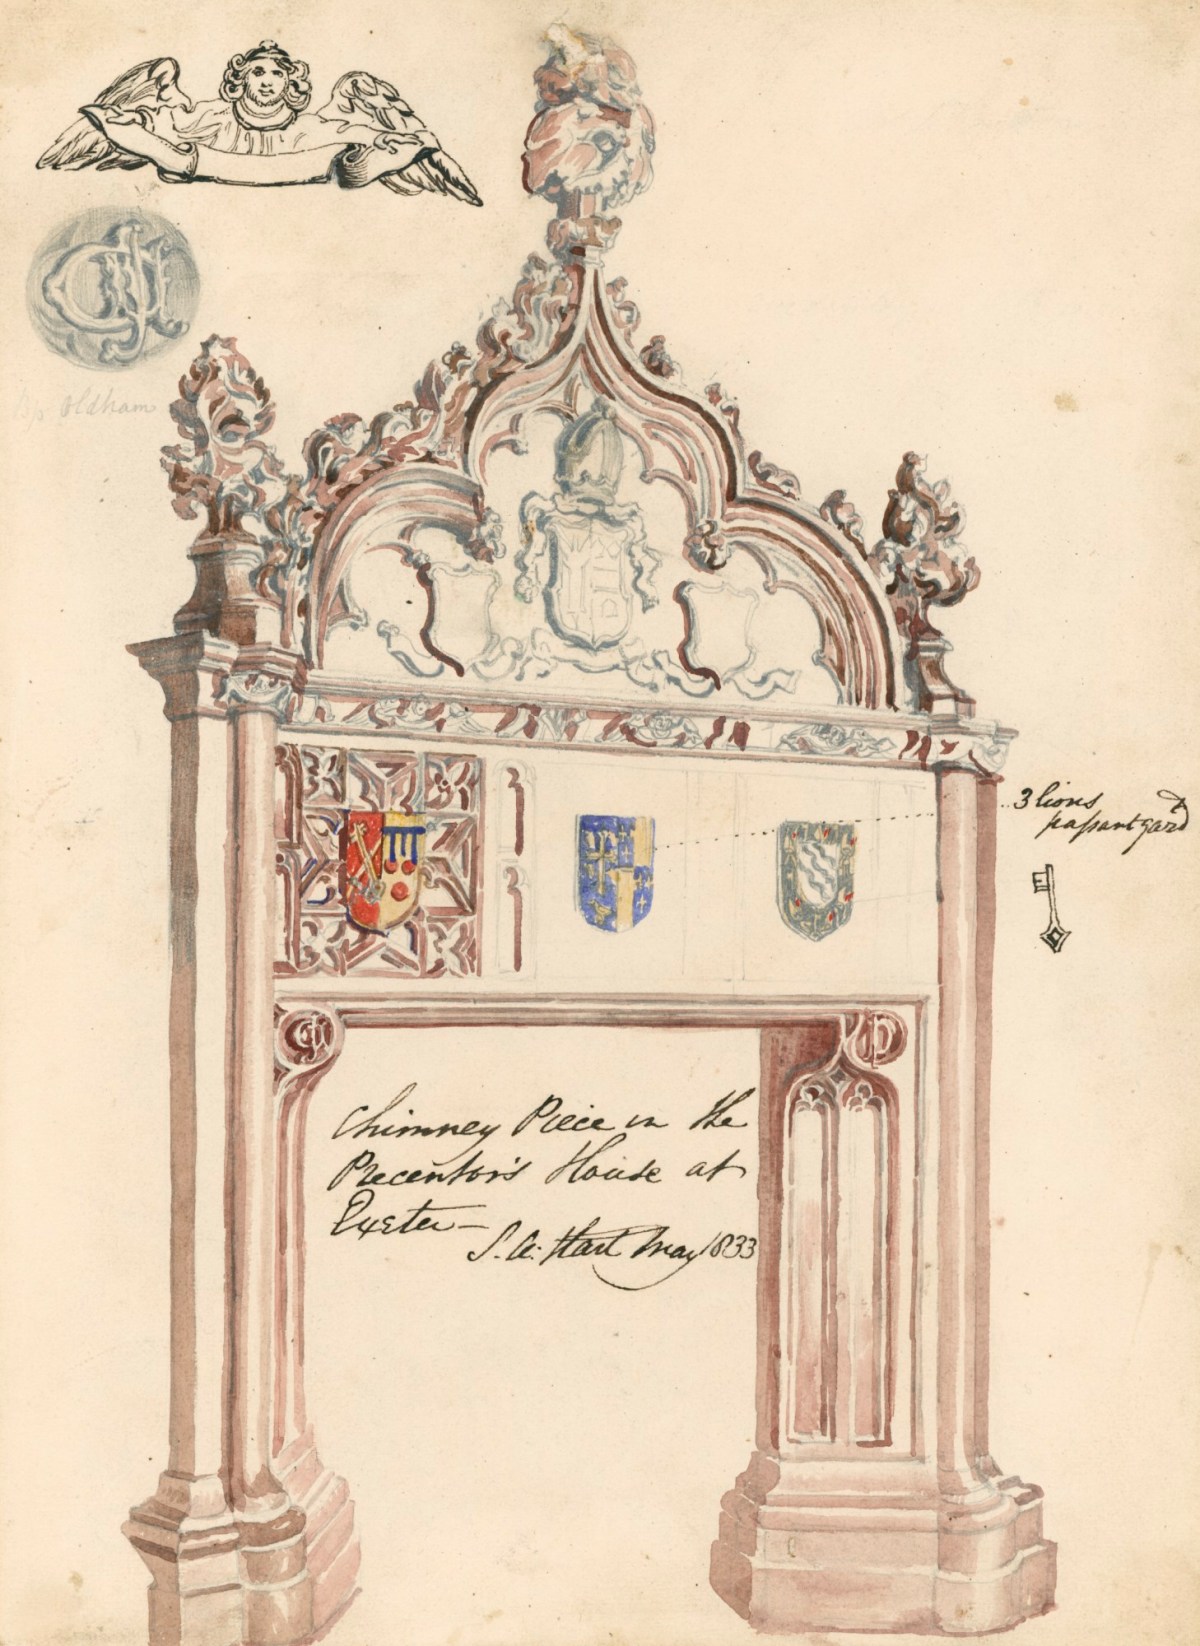 Bp Oldham
3 lions
passant gard
Chimney Piece in the
Precentor's House at
Exeter—
S. A. Hart May 1833